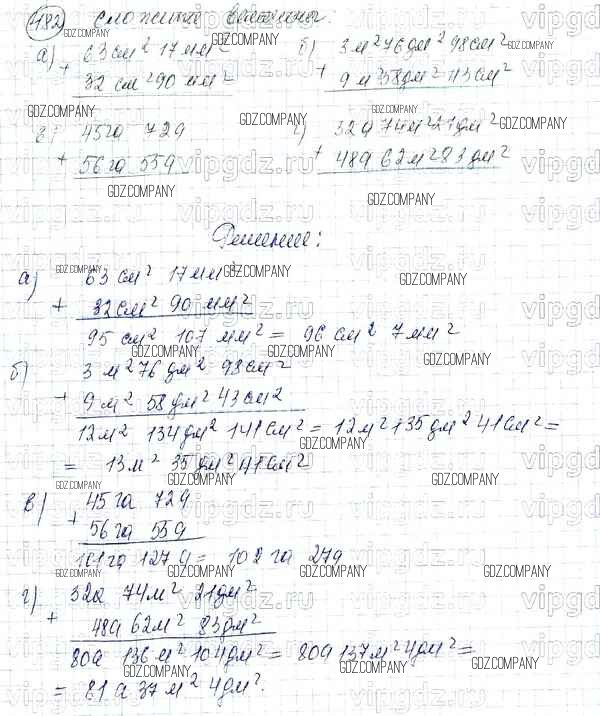 482. Сложите величины.
а) 63 см² 17 мм² б) 3 м² 76 дм² 98 см²
+ 32 см² 90 мм² = + 9 м² 58 дм² 43 см²
в) 45 га 72 а г) 32 а 74 м² 21 дм²
+ 56 га 55 а + 48 а 62 м² 83 дм²
Решение:
а) 63 см² 17 мм²
+ 32 см² 90 мм²
95 см² 107 мм² = 96 см² 7 мм²
б) 3 м² 76 дм² 98 см²
+ 9 м² 58 дм² 43 см2
12 м² 134 дм² 141 см² = 12 м² 135 дм² 41 см² =
= 13 м² 35 дм² 41 см²
в) 45 га 72 а
+ 56 га 55 а
101 га 127 а = 102 га 27 а
г) 32 а 74 м² 21 дм²
+ 48 а 62 м² 83 дм²
80 а 136 м² 104 дм² = 80 а 137 м² 4 дм² =
= 81 а 37 м² 4 дм².
GDZ.COMPANY
vipgdz.ru